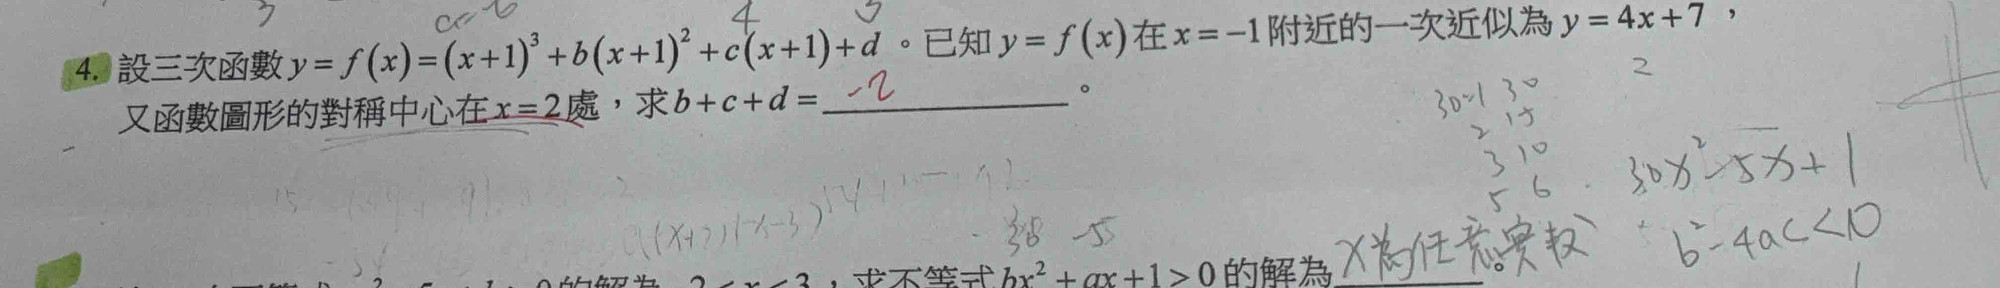 3
4 3
4. 設三次函數 y = f(x) = (x+1)³ + b(x+1)² + c(x+1) + d 。已知 y = f(x) 在 x = −1 附近的一次近似為 y = 4x + 7 ,
又函數圖形的對稱中心在 x = 2 處,求 b + c + d = -2 。
2
30=1 30
2 15
3 10
5 6
30x² - 5x + 1
b² - 4ac < 10
(x+2)(x-3)
-5
的解為 −2 < x < 3 , 求不等式 bx² + ax + 1 > 0 的解為 x為任意實數 。